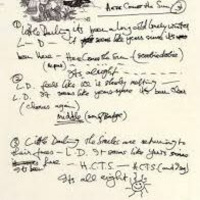 Here Comes the Sun
① Little Darling its been a long cold lonely winter
L — D — It seems like years since its
been here — Here Comes the Sun
(repeat)
Its alright
②
L.D. feels like ice is slowly melting —
L.D. It seems like years since its been clear
(Chorus again)
Middle
③ Little Darling the Smiles are returning to
their faces — L.D. It seems like years since
its been here — H.C.T.S — H.C.T.S
Its all right